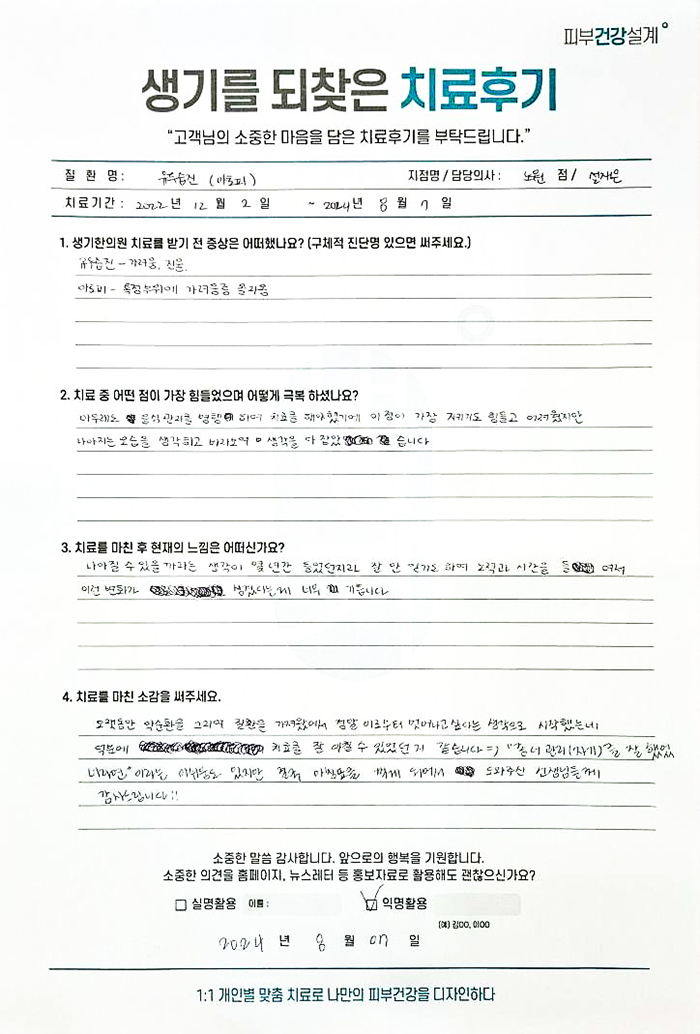 피부건강설계
생기를 되찾은 치료후기
“고객님의 소중한 마음을 담은 치료후기를 부탁드립니다.”
질 환 명 : 유두습진 (아토피) 지점명 / 담당의사 : 노원 점 /
치료기간 : 2022년 12월 2일 ~ 2024년 8월 7일
1. 생기한의원 치료를 받기 전 증상은 어떠했나요? (구체적 진단명 있으면 써주세요.)
유두습진 - 가려움, 진물.
아토피 - 특정부위에 가려움증 올라옴
2. 치료 중 어떤 점이 가장 힘들었으며 어떻게 극복 하셨나요?
아무래도 음식관리를 병행 하여 치료를 해야했기에 이 점이 가장 지키기도 힘들고 어려웠지만
나아지는 모습을 생각하고 바라보며 생각을 다 잡았 습니다
3. 치료를 마친 후 현재의 느낌은 어떠신가요?
나아질 수 있을까라는 생각이 몇 년간 들었던지라 잘 안 믿기도 하며 노력과 시간을 들 여서
이런 변화가 생겼다는게 너무 기쁩니다
4. 치료를 마친 소감을 써주세요.
오랫동안 악순환을 그리며 질환을 가져왔어서 정말 이로부터 벗어나고싶다는 생각으로 시작했는데
덕분에 치료를 잘 마칠 수 있었던 거 같습니다 =) "좀 더 관리(자기)를 잘 했었
더라면," 이라는 아쉬움도 있지만 마침표를 찍게 되어서 도와주신 선생님들께
감사드립니다!!
소중한 말씀 감사합니다. 앞으로의 행복을 기원합니다.
소중한 의견을 홈페이지, 뉴스레터 등 홍보자료로 활용해도 괜찮으신가요?
실명활용 이름 : 익명활용
(예) 김OO, 이OO
2024 년 8 월 07 일
1:1 개인별 맞춤 치료로 나만의 피부건강을 디자인하다